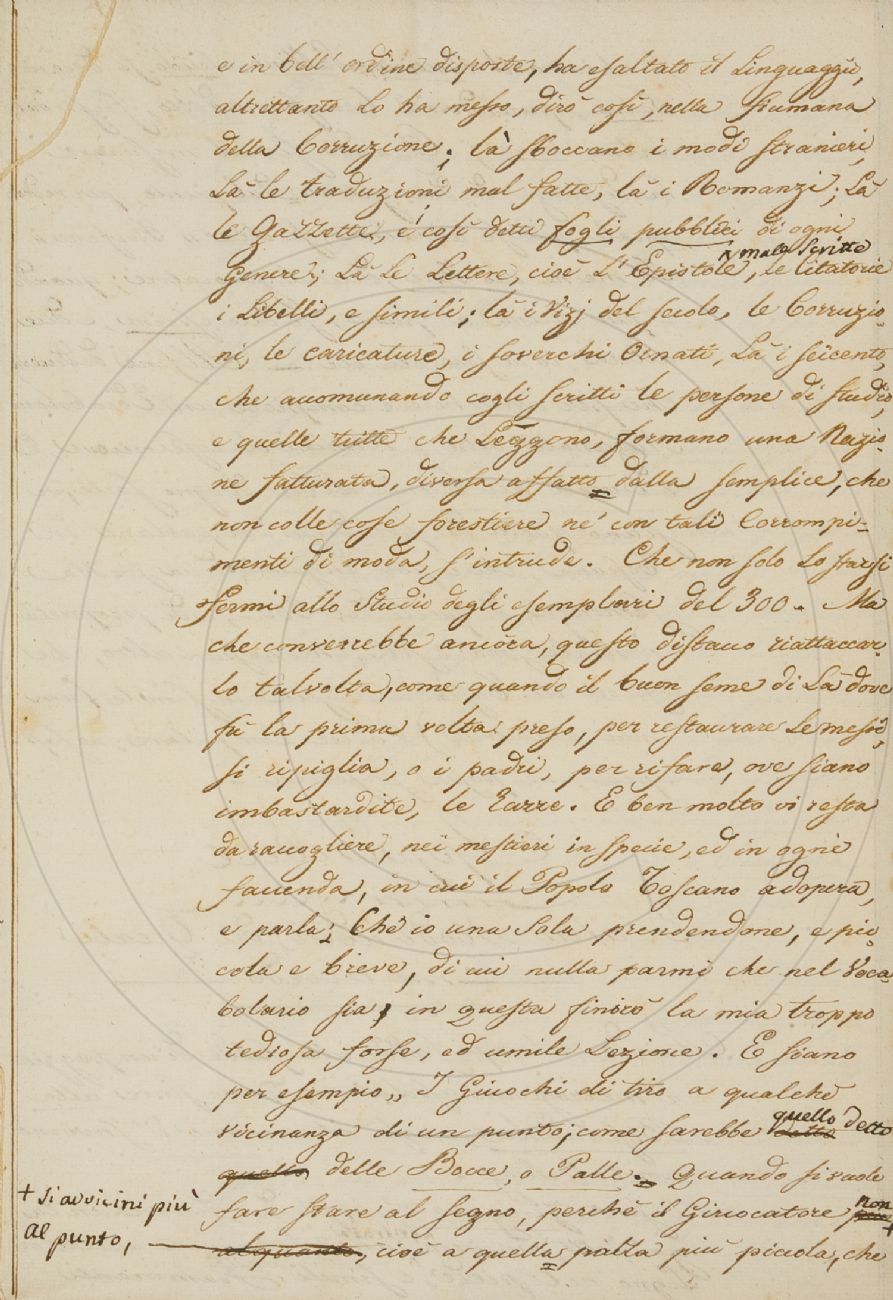 e in bell' ordine disposte, ha esaltato il Linguaggio,
altrettanto Lo ha messo, dirò così, nella fiumana
della Corruzione; là sboccano i modi stranieri,
Là le traduzioni mal fatte, là i Romanzi; Là
le Gazzette, e così detti fogli pubblici di ogni
male scritte
Genere; Là Le Lettere, cioè L'Epistole, Le Citatorie
i Libelli, e simili; là i Vizj del secolo, le Corruzio-
ni, le caricature, i soverchi Ornati, Là i seicento,
che accomunando cogli scritti le persone di studio,
e quelle tutte che Leggono, formano una Nazio-
ne fatturata, diversa affatto dalla semplice, che
non colle cose forestiere nè con tali Corrompi-
menti di moda, s'intrude. Che non solo Lo starsi
fermi allo Studio degli esemplari del 300. Ma
che converrebbe ancora, questo distacco riattaccar-
lo talvolta, come quando il buon seme di Là dove
fù la prima volta preso, per restaurare Le messi,
si ripiglia, o i padri, per rifare, ove siano
imbastardite, le Razze. E ben molto vi resta
da raccogliere, nei mestieri in specie, ed in ogni
faccenda, in cui il Popolo Toscano adopera,
e parla; Chè io una sola prendendone, e pic-
cola e breve, di cui nulla parmi che nel Voca-
bolario sia, in questa finirò la mia troppo
tediosa forse, ed umile Lezione. E siano
per esempio,, I Giuochi di tiro a qualche
vicinanza di un punto; come sarebbe quello detto
quello delle Bocce, o Palle. Quando si vuole
fare stare al segno, perchè il Giuocatore non
+ si avvicini più
al punto,
al quanto, cioè a quella palla più piccola, che